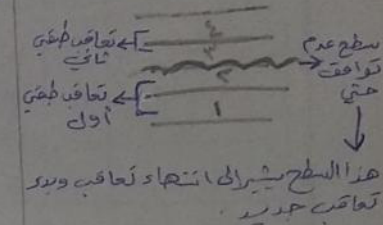 ٤
تعاقب طبقي
ثاني
٣
سطح عدم
توافق
حتي
٢
تعاقب طبقي
أول
١
هذا السطح يشير الى انتهاء تعاقب وبدء
تعاقب جديد.